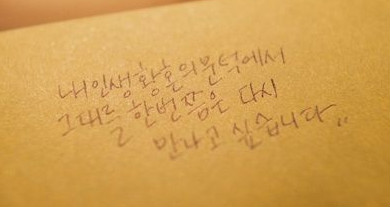 내 인생 황혼의 문턱에서
그대를 한번쯤은 다시
만나고 싶습니다"